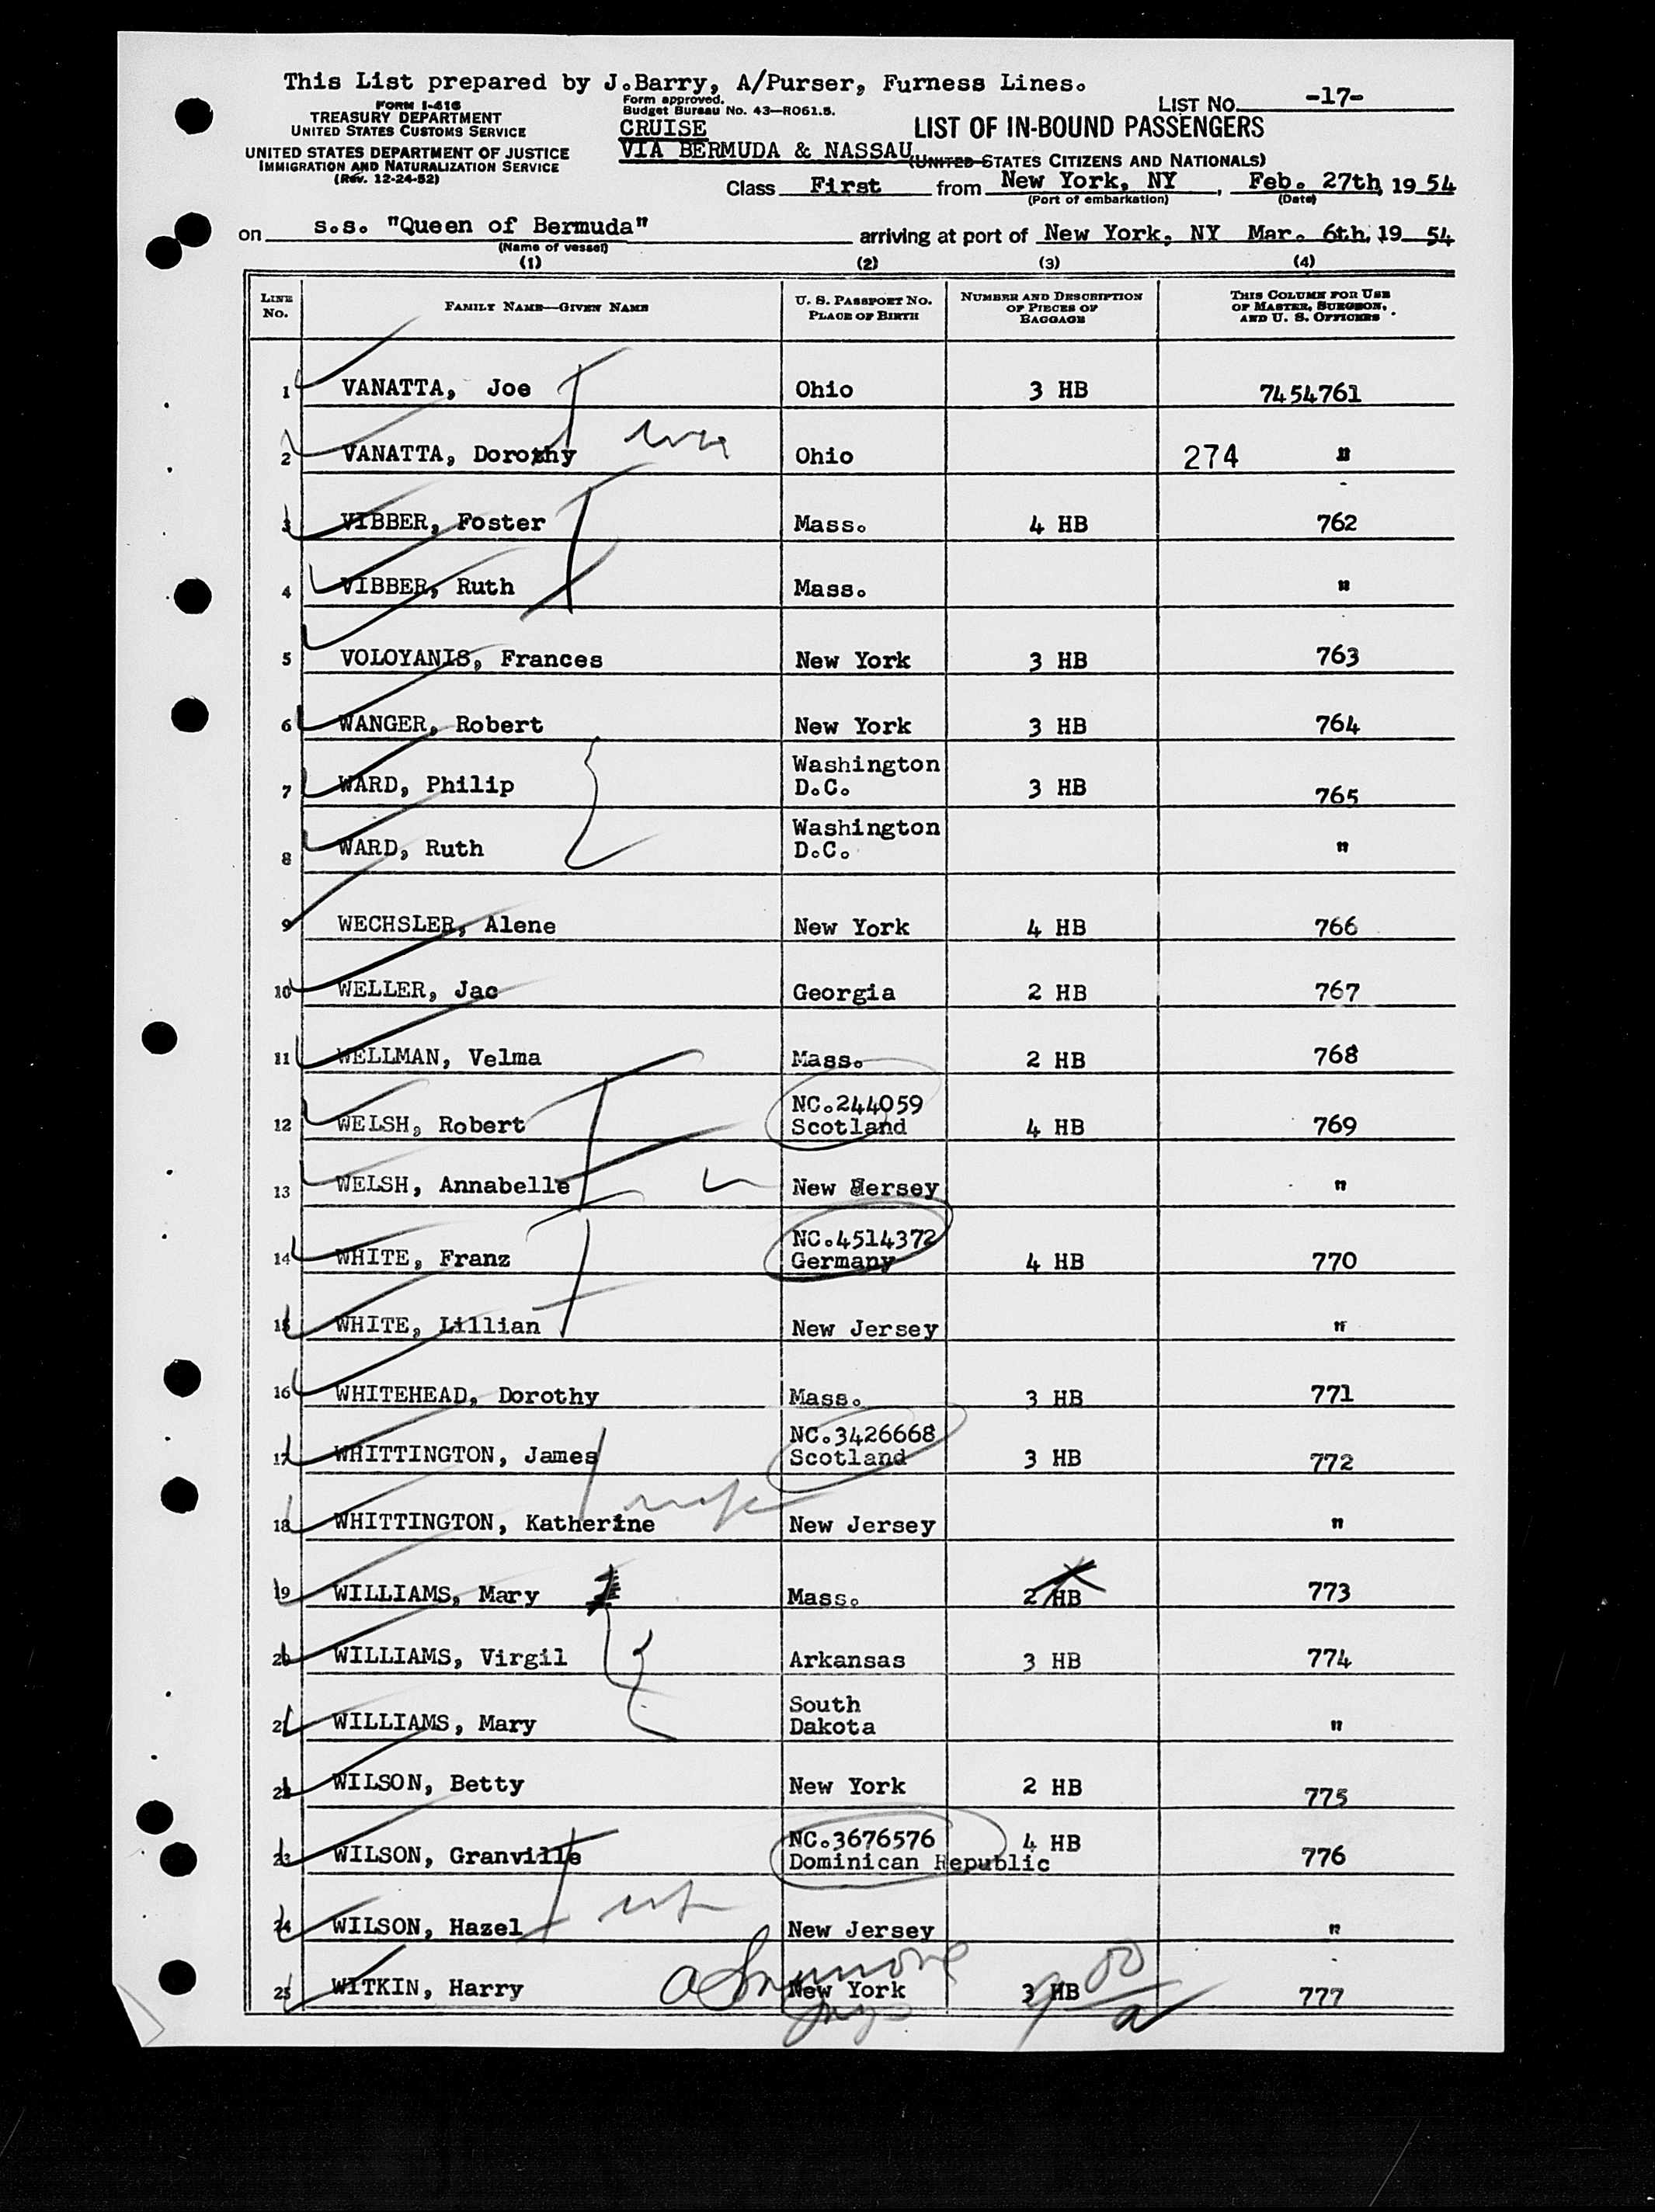 This List prepared by J.Barry, A/Purser, Furness Lines.
FORM I-416
TREASURY DEPARTMENT
UNITED STATES CUSTOMS SERVICE
UNITED STATES DEPARTMENT OF JUSTICE
IMMIGRATION AND NATURALIZATION SERVICE
(Rev. 12-24-52)
Form approved.
Budget Bureau No. 43—R061.5.
CRUISE
VIA BERMUDA & NASSAU
LIST NO. -17-
LIST OF IN-BOUND PASSENGERS
(UNITED STATES CITIZENS AND NATIONALS)
Class First from New York, NY, Feb. 27th, 1954
(Port of embarkation) (Date)
on s.s. "Queen of Bermuda" arriving at port of New York, NY Mar. 6th, 1954
(Name of vessel)
(1) (2) (3) (4)
LINE No. FAMILY NAME—GIVEN NAME U. S. PASSPORT No. PLACE OF BIRTH NUMBER AND DESCRIPTION OF PIECES OF BAGGAGE THIS COLUMN FOR USE OF MASTER, SURGEON, AND U. S. OFFICERS
1 VANATTA, Joe Ohio 3 HB 7454761
2 VANATTA, Dorothy Ohio 274 "
3 VIBBER, Foster Mass. 4 HB 762
4 VIBBER, Ruth Mass. "
5 VOLOYANIS, Frances New York 3 HB 763
6 WANGER, Robert New York 3 HB 764
7 WARD, Philip Washington D.C. 3 HB 765
8 WARD, Ruth Washington D.C. "
9 WECHSLER, Alene New York 4 HB 766
10 WELLER, Jac Georgia 2 HB 767
11 WELLMAN, Velma Mass. 2 HB 768
12 WELSH, Robert NC.244059 Scotland 4 HB 769
13 WELSH, Annabelle New Jersey "
14 WHITE, Franz NC.4514372 Germany 4 HB 770
15 WHITE, Lillian New Jersey "
16 WHITEHEAD, Dorothy Mass. 3 HB 771
17 WHITTINGTON, James NC.3426668 Scotland 3 HB 772
18 WHITTINGTON, Katherine New Jersey "
19 WILLIAMS, Mary Mass. 2 HB 773
20 WILLIAMS, Virgil Arkansas 3 HB 774
21 WILLIAMS, Mary South Dakota "
22 WILSON, Betty New York 2 HB 775
23 WILSON, Granville NC.3676576 Dominican Republic 4 HB 776
24 WILSON, Hazel New Jersey "
25 WITKIN, Harry New York 3 HB 777